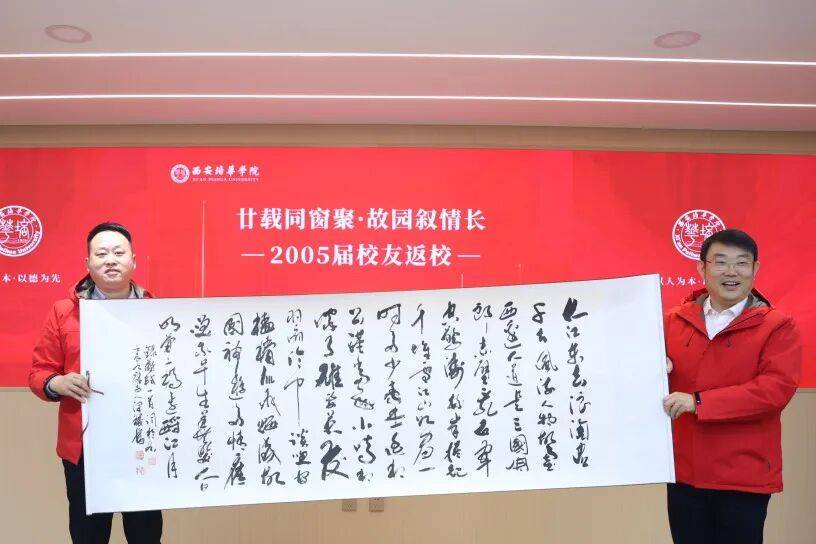 西安培华学院
XI'AN PEIHUA UNIVERSITY
廿载同窗聚·故园叙情长
—2005届校友返校—
本·以德为先
以人为本·
大江东去浪淘尽
千古风流人物故垒
西边人道是三国周
郎赤壁乱石穿
空惊涛拍岸卷起
千堆雪江山如画一
时多少豪杰遥想
公瑾当年小乔初
嫁了雄姿英发
羽扇纶巾谈笑间
樯橹灰飞烟灭故
国神游多情应
笑我早生华发人生
如梦一尊还酹江月